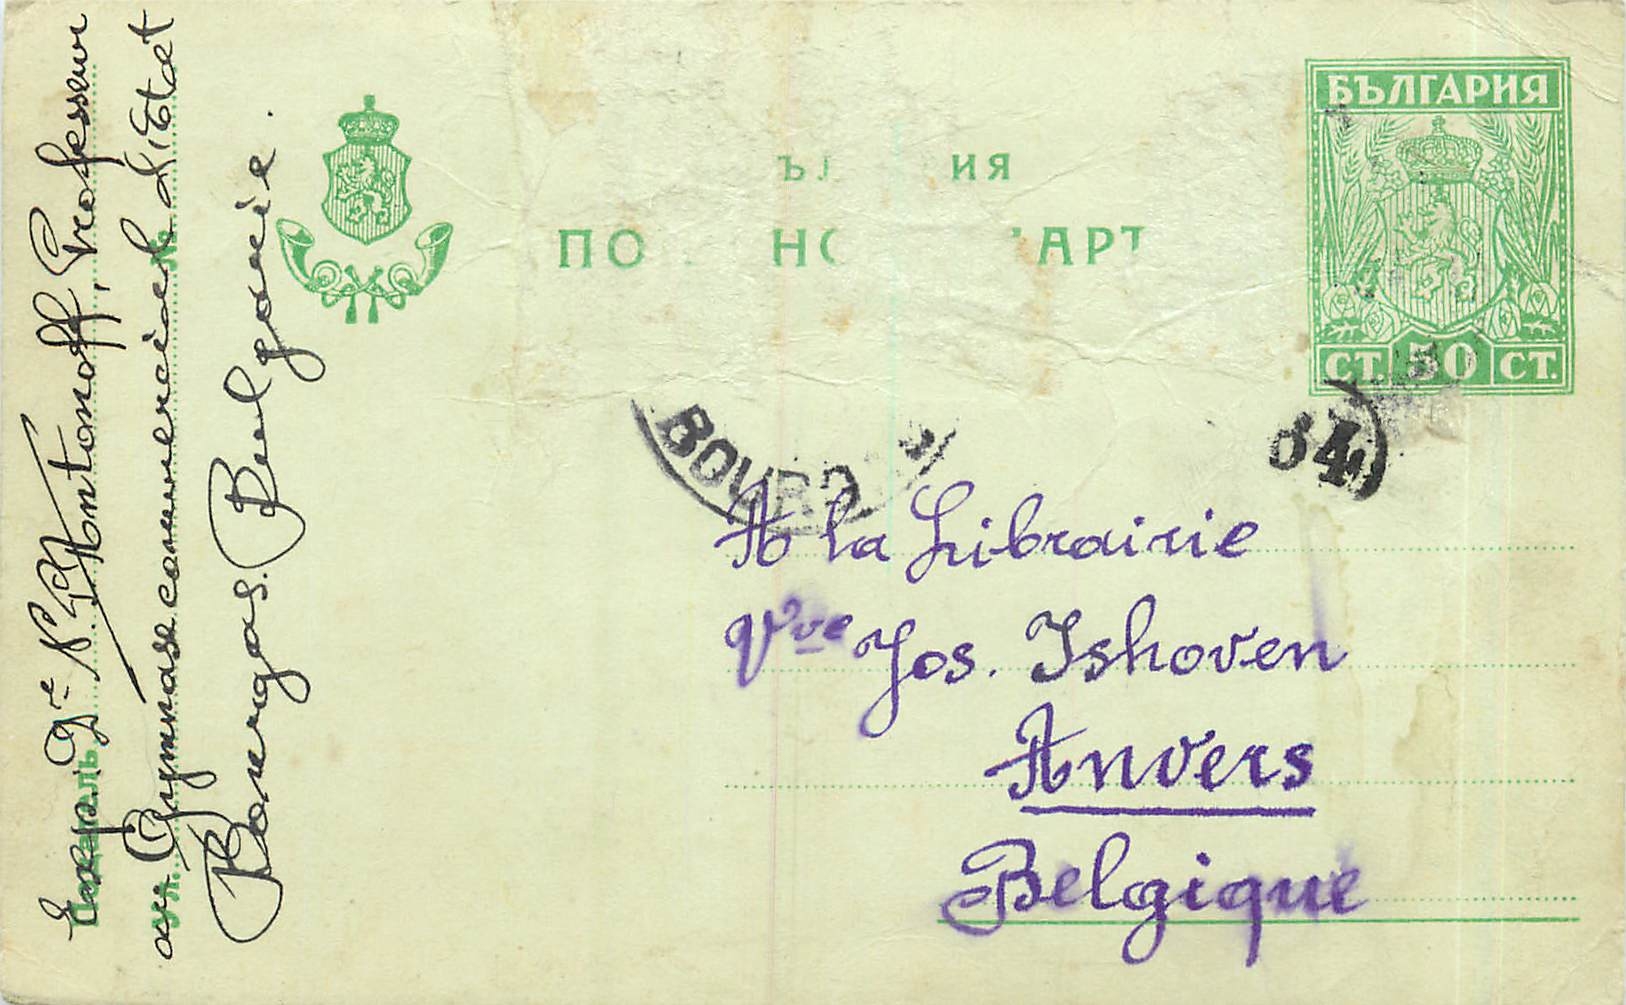 БЪЛГАРИЯ
ЪЛ ИЯ
ПО НО КАРТ
СТ. 50 СТ.
BOURG
34
A la Librairie
Vve Jos. Ishoven
Anvers
Belgique
Подателъ
Exp. Antonoff, Professeur
au Gymnase commercial d'Etat
Bourgas. Bulgarie.